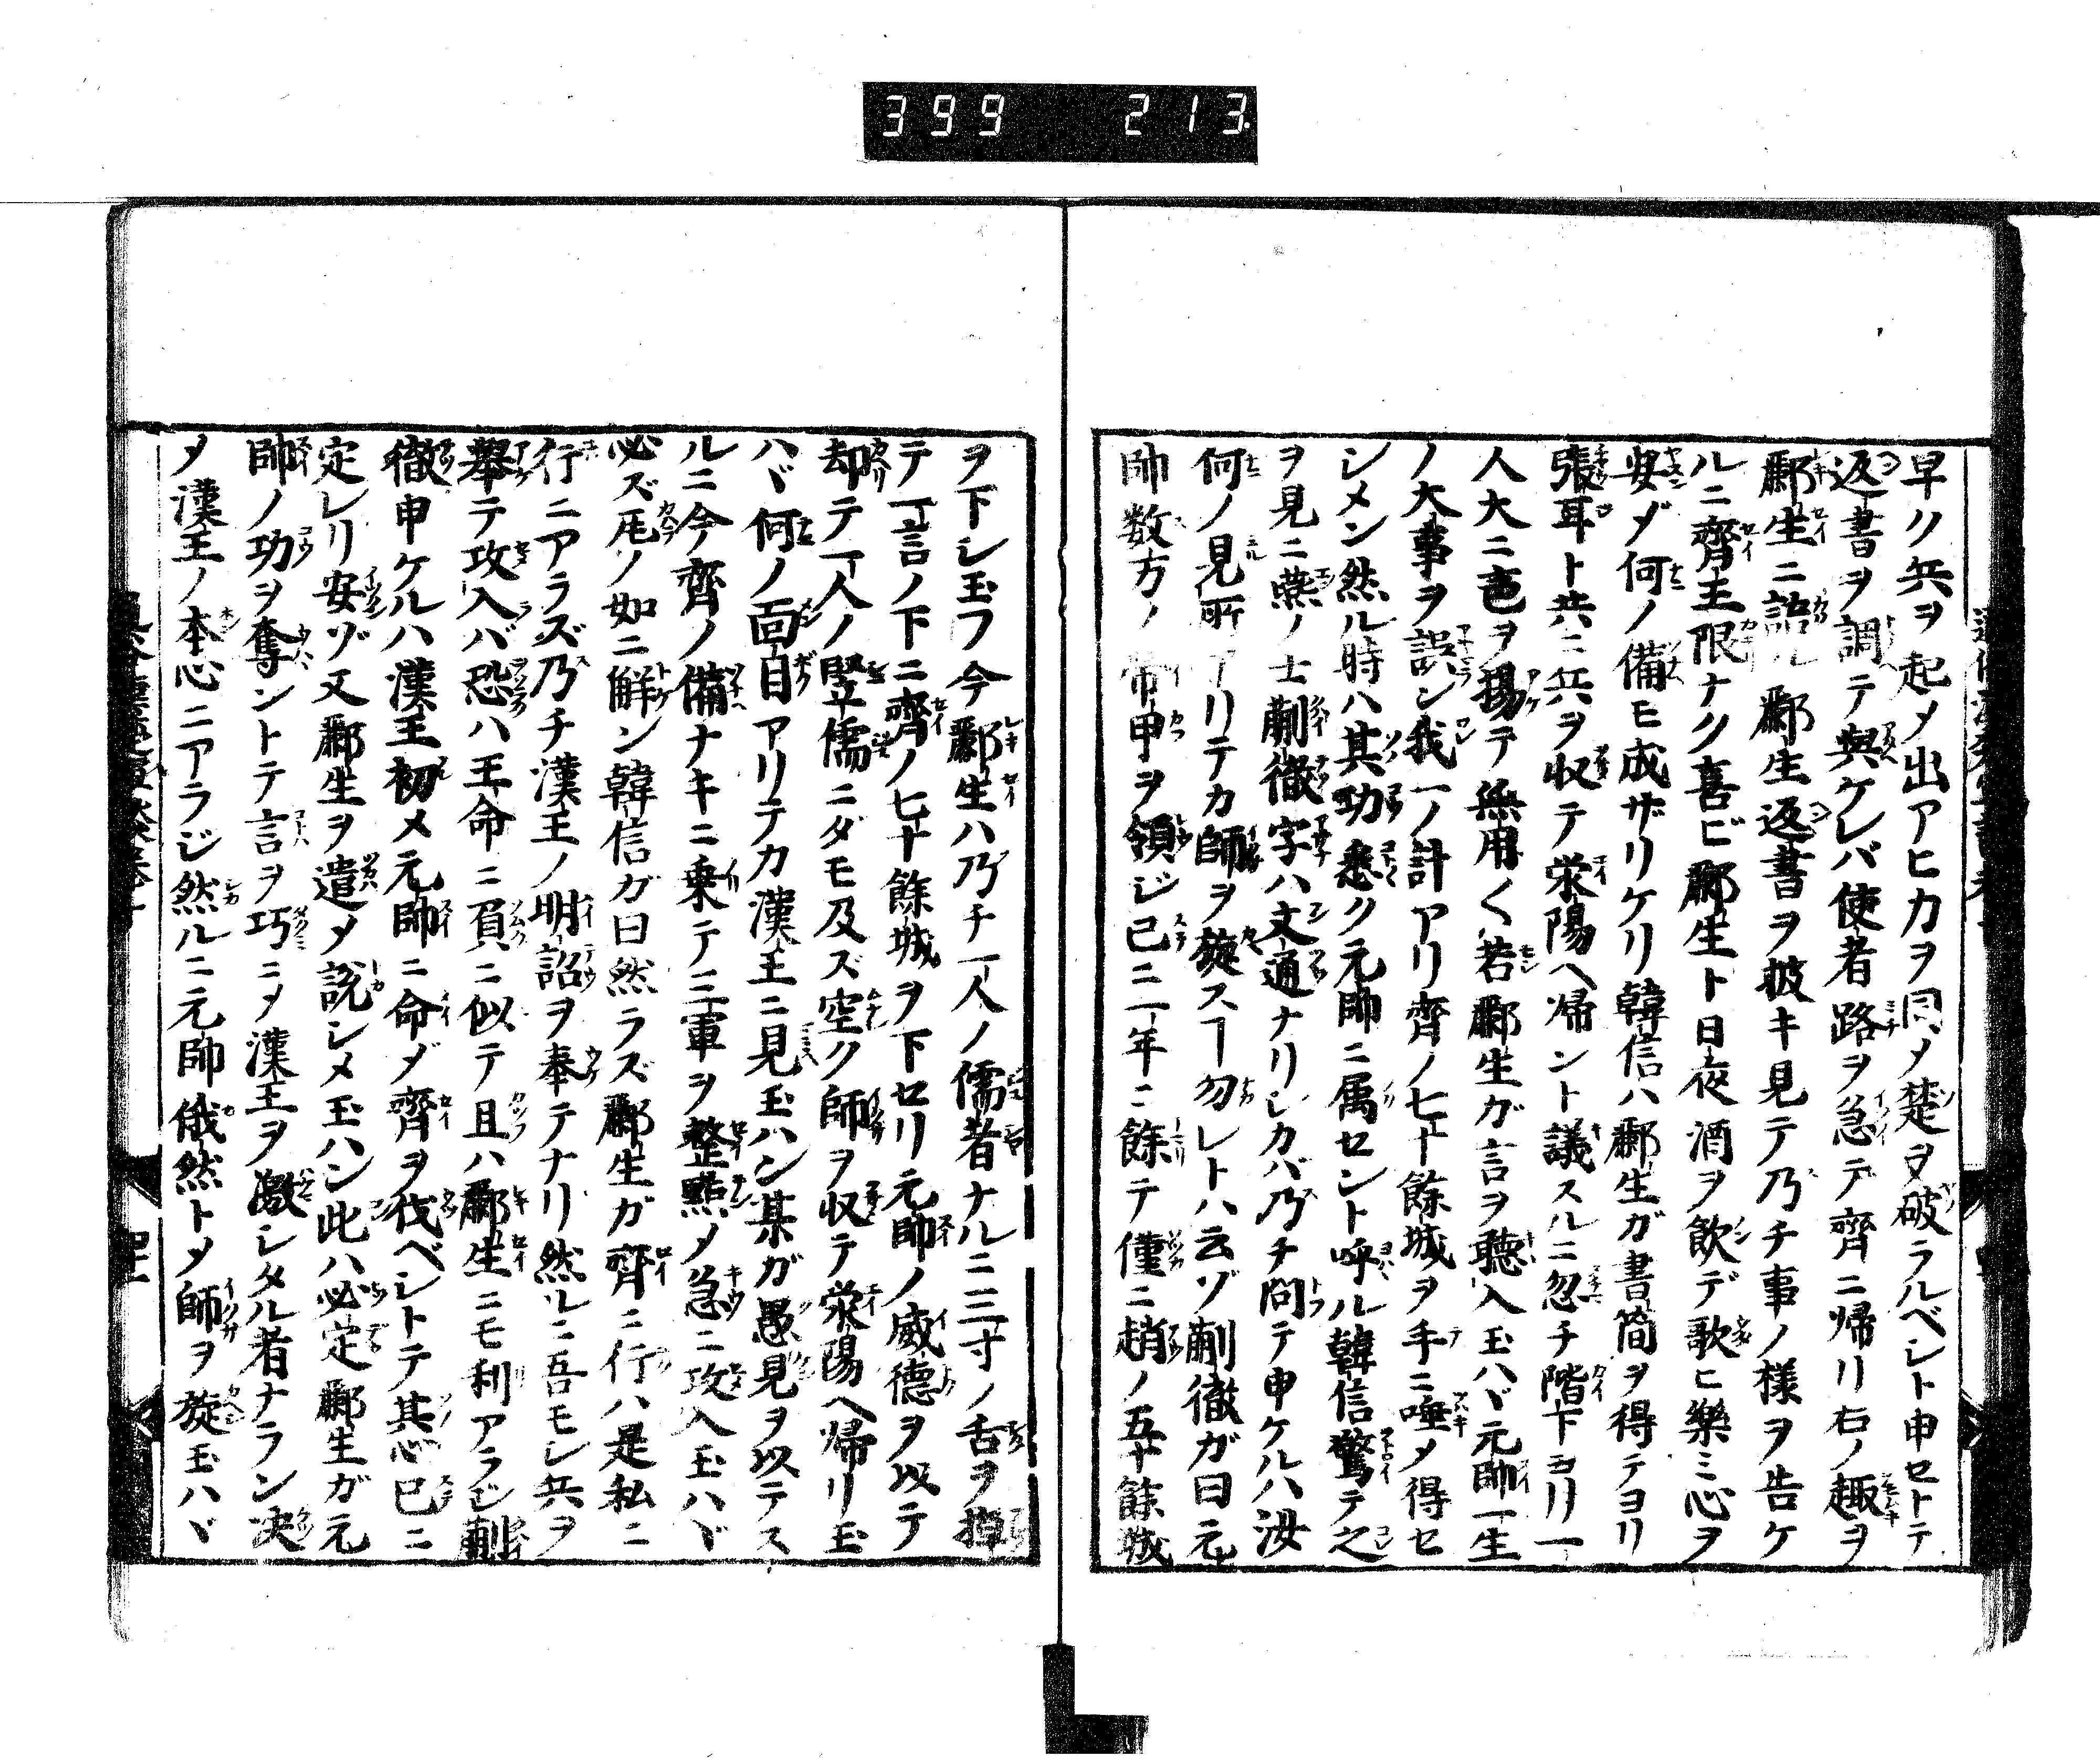 399 213
早ク兵ヲ起メ出アヒカヲ同メ楚ヲ破ラルベシト申セトテ
返書ヲ調テ與ケレバ使者路ヲ急デ齊ニ帰リ右ノ趣ヲ
酈生ニ語ル酈生返書ヲ披キ見テ乃チ事ノ様ヲ告ケ
ルニ齊王限ナク喜ビ酈生ト日夜酒ヲ飲デ歌ヒ樂ミ心ヲ
安ジ何ノ備モ成ザリケリ韓信ハ酈生ガ書簡ヲ得テヨリ
張耳ト共ニ兵ヲ収テ栄陽ヘ帰ント議スルニ忽チ階下ヨリ一
人大ニ声ヲ揚テ無用く若酈生ガ言ヲ聽入玉ハヾ元帥一生
ノ大事ヲ誤ン我一ノ計アリ齊ノ七十餘城ヲ手ニ唾メ得セ
シメン然ル時ハ其功悉ク元帥ニ属セント呼ル韓信驚テ之
ヲ見ニ燕ノ士蒯徹字ハ文通ナリシカバ乃チ問テ申ケルハ汝
何ノ見所アリテカ師ヲ旋スヿ勿レトハ云ゾ蒯徹ガ曰元
帥数万ノ帯甲ヲ領ジ已ニ一年ニ餘テ僅ニ趙ノ五十餘城
ヲ下シ玉フ今酈生ハ乃チ一人ノ儒者ナルニ三寸ノ舌ヲ掉
テ一言ノ下ニ齊ノ七十餘城ヲ下セリ元帥ノ威德ヲ以テ
却テ一人ノ竪儒ニダモ及ズ空ク師ヲ収テ滎陽ヘ帰リ玉
ハヾ何ノ面目アリテカ漢王ニ見玉ハン某ガ愚見ヲ以テス
ルニ今齊ノ備ナキニ乗テ三軍ヲ整點メ急ニ攻入玉ハヾ
必ズ瓦ノ如ニ解ン韓信ガ曰然ラズ酈生ガ齊ニ行ハ是私ニ
行ニアラズ乃チ漢王ノ明詔ヲ奉テナリ然ルニ吾モシ兵ヲ
擧テ攻入バ恐ハ王命ニ負ニ似テ且ハ酈生ニモ利アラジ蒯
徹申ケルハ漢王初メ元帥ニ命ジ齊ヲ伐ベシトテ其心已ニ
定レリ安ゾ又酈生ヲ遣メ説シメ玉ハン此ハ必定酈生ガ元
帥ノ功ヲ奪ントテ言ヲ巧ニメ漢王ヲ激シタル者ナラン决
メ漢王ノ本心ニアラジ然ルニ元帥俄然トメ師ヲ旋玉ハヾ